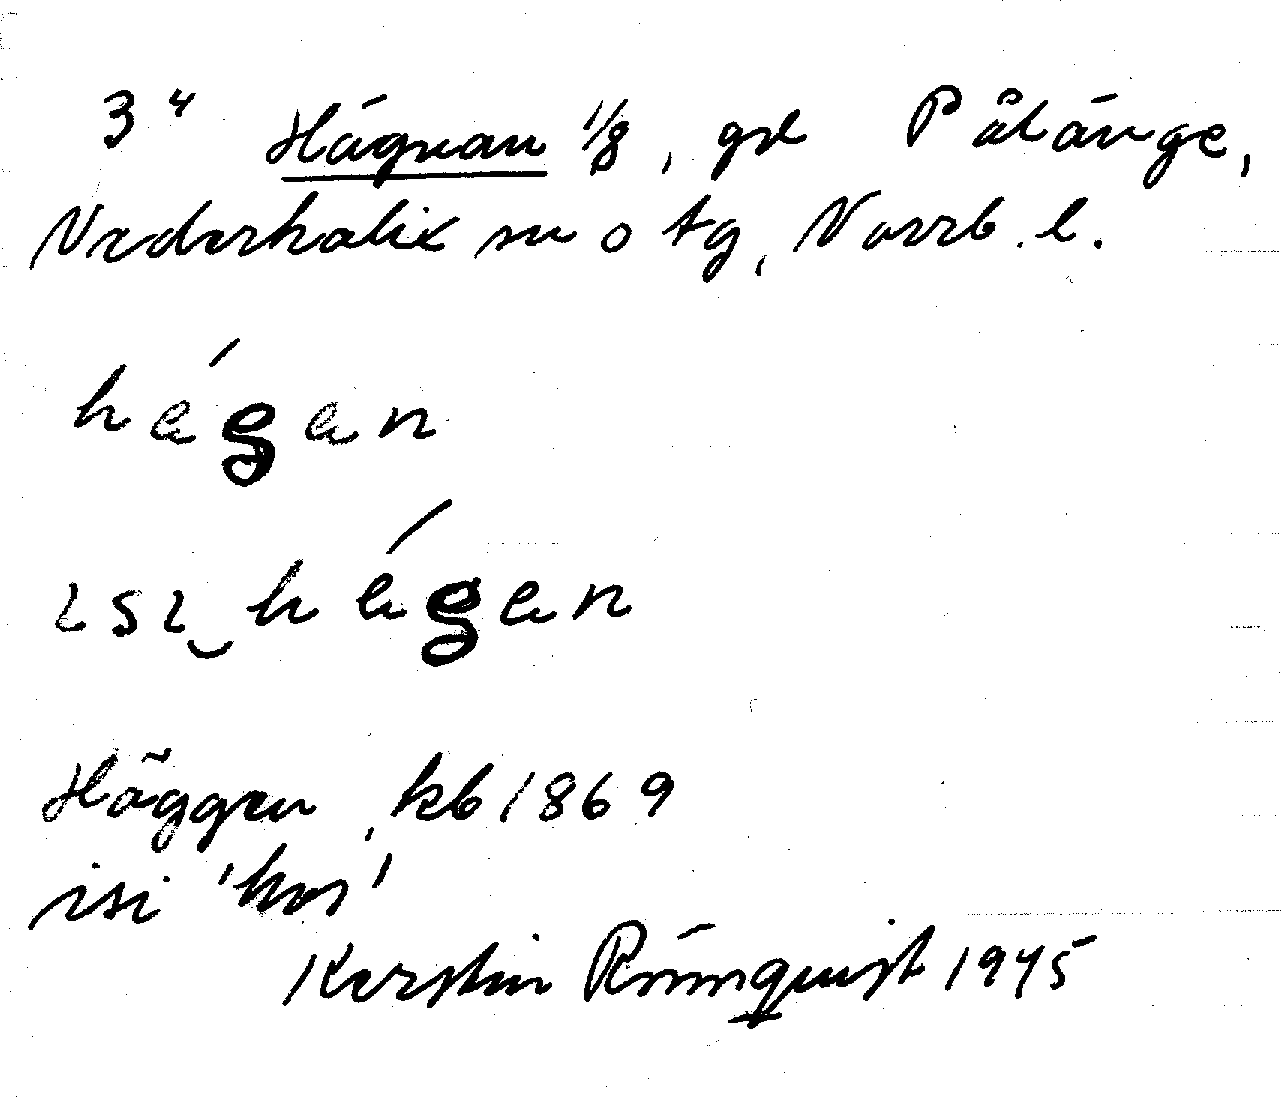 3⁴ Hägnan 1/8, gd Pålänge,
Nederkalix sn o tg, Norrb. l.
hǽgæn
ɩsɩ‿hǽgæn
Häggen, kb 1869
isi 'hos'
Kerstin Rönnquist 1945